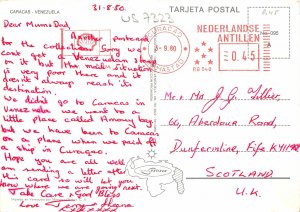 CARACAS - VENEZUELA
TARJETA POSTAL
31-8-80.
US 7323
Dear Mum & Dad,
Another postcard
for the collection. Sorry we
can't get a Venezuelan stamp
on it but the mail situation
is very poor there and it
doesn't always reach its
destination.
We didn't go to Caracas in
Venezuela. We went to a
little place called Amuay bay
but we have been to Caracas
on the plane when we paid off
a ship in Curaçao.
Hope you are all well.
Am sending a letter after
this card so will let you
know where we are going next.
Take Care & God Bless
Love
NEDERLANDSE
ANTILLEN
-3.-9.80
0.45
Mr & Mrs J. G.
66, Aberdour Road,
Dunfermline, Fife
SCOTLAND
U.K.